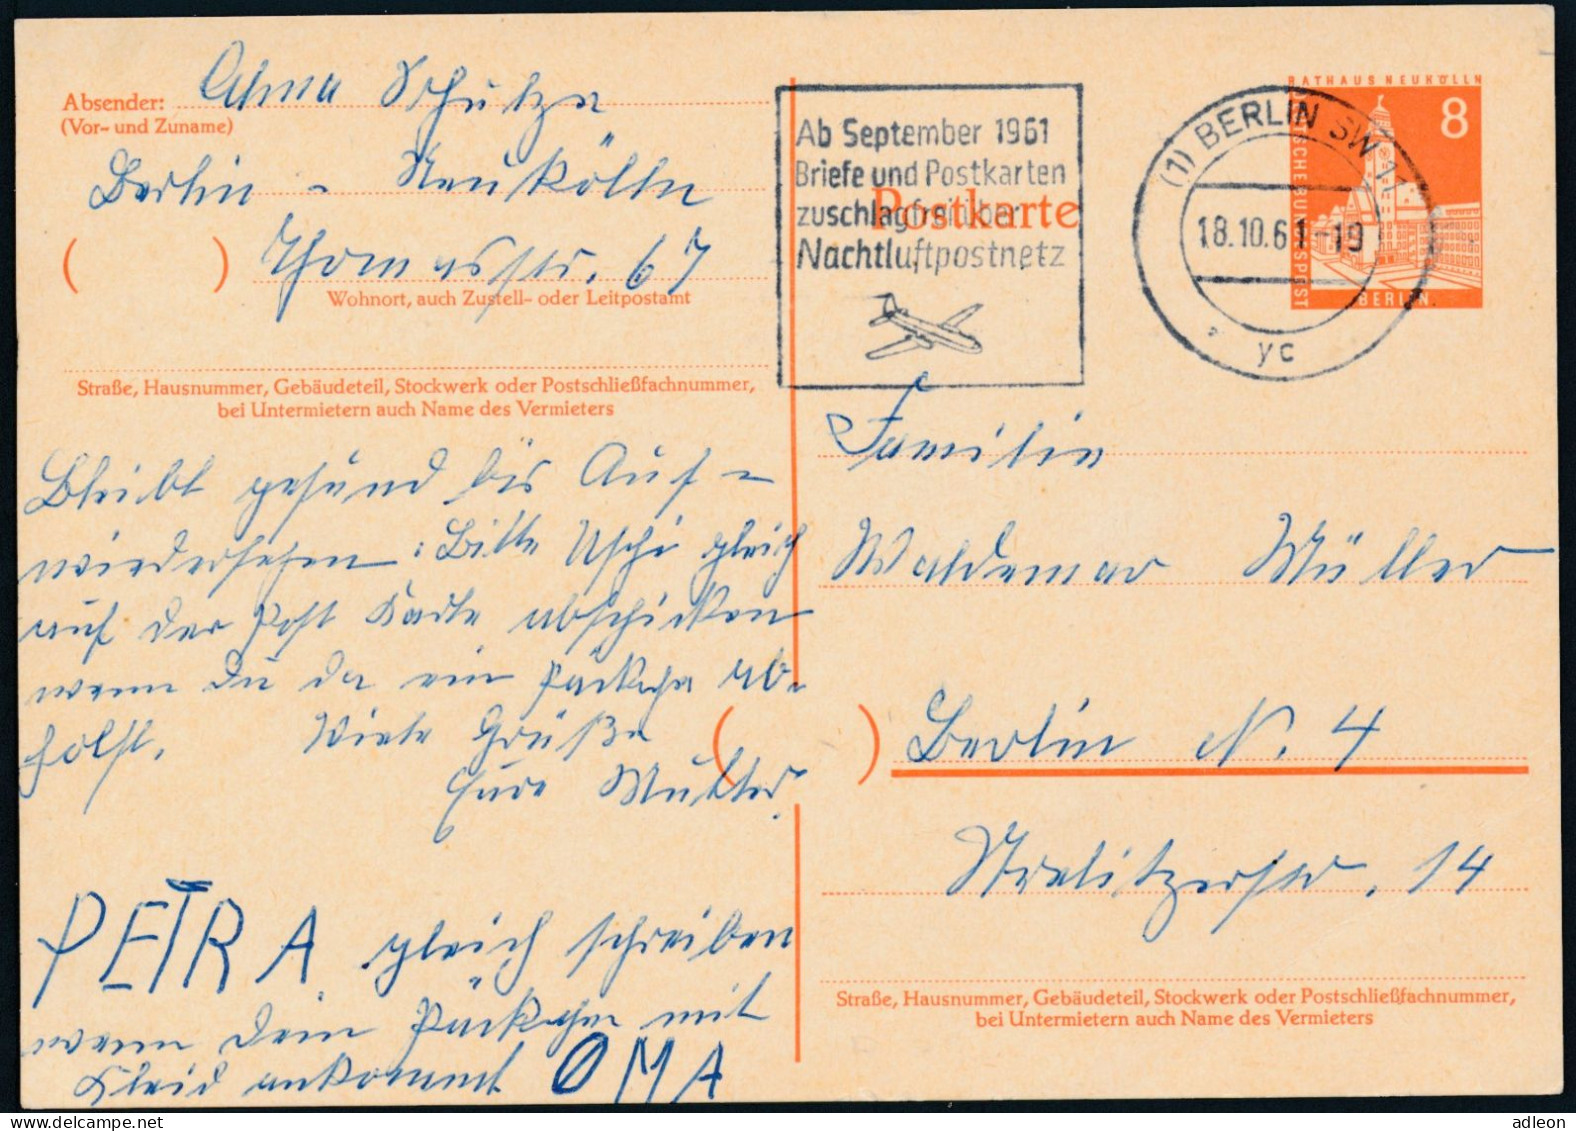 Absender: Alma Schulze
(Vor- und Zuname)
Berlin - Neukölln
Thomasstr. 67
Wohnort, auch Zustell- oder Leitpostamt
Straße, Hausnummer, Gebäudeteil, Stockwerk oder Postschließfachnummer,
bei Untermietern auch Name des Vermieters
Bleibt gesund bis Auf-
wiedersehen. Bitte Uschi gleich
auf der Post Karte abschicken
wenn Du da ein Päckchen ab-
holst. Viele Grüße
Eure Mutter.
PETRA gleich schreiben
wenn Dein Päckchen mit
Kleid ankommt OMA
Ab September 1961
Briefe und Postkarten
zuschlagfrei über
Nachtluftpostnetz
Postkarte
(1) BERLIN SW 11
18.10.61-19
yc
RATHAUS NEUKÖLLN
8
DEUTSCHE BUNDESPOST
BERLIN
Familie
Waldemar Müller
Berlin N. 4
Strelitzerstr. 14
Straße, Hausnummer, Gebäudeteil, Stockwerk oder Postschließfachnummer,
bei Untermietern auch Name des Vermieters
adleon - delcampe.net